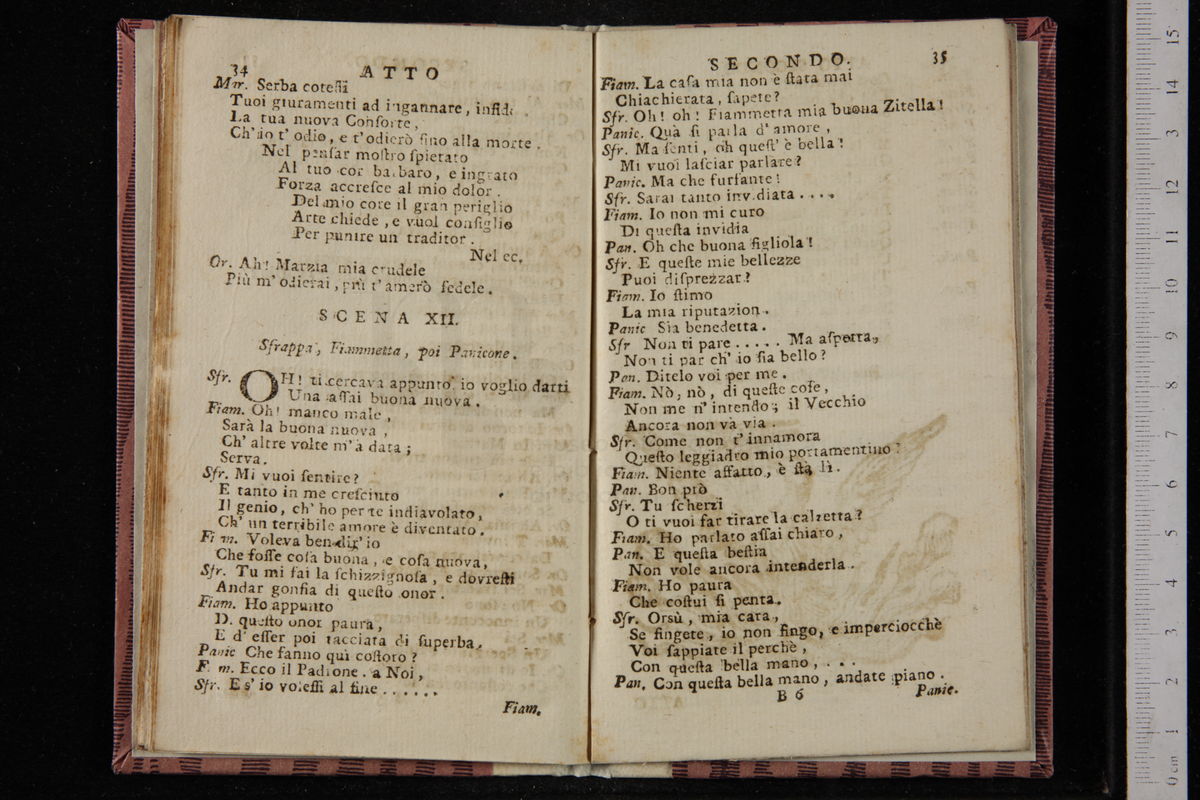 34 ATTO
Mar. Serba cotesti
Tuoi giuramenti ad ingannare, infido.
La tua nuova Conſorte,
Ch' io t' odio, e t' odierò fino alla morte.
Nel penſar moſtro ſpietato
Al tuo cor barbaro, e ingrato
Forza accreſce al mio dolor.
Del mio core il gran periglio
Arte chiede, e vuol conſiglio
Per punire un traditor.
Nel ec.
Or. Ah! Marzia mia crudele
Più m' odierai, più t' amerò fedele.
SCENA XII.
Sfrappa, Fiammetta, poi Panicone.
Sfr. OH! ti cercava appunto: io voglio darti
Una aſſai buona nuova.
Fiam. Oh! manco male,
Sarà la buona nuova,
Ch' altre volte m' à data;
Serva.
Sfr. Mi vuoi ſentire?
E tanto in me creſciuto
Il genio, ch' ho per te indiavolato,
Ch' un terribile amore è diventato.
Fiam. Voleva ben dir' io
Che foſſe coſa buona, e coſa nuova,
Sfr. Tu mi fai la ſchizzignoſa, e dovreſti
Andar gonfia di queſto onor.
Fiam. Ho appunto
Di queſto onor paura,
E d' eſſer poi tacciata di ſuperba.
Panic Che fanno quì coſtoro?
Fiam. Ecco il Padrone. a Noi,
Sfr. E s' io voleſſi al fine......
Fiam.
SECONDO. 35
Fiam. La caſa mia non è ſtata mai
Chiachierata, ſapete?
Sfr. Oh! oh! Fiammetta mia buona Zitella!
Panic. Quà ſi parla d' amore,
Sfr. Ma ſenti, oh queſt' è bella!
Mi vuoi laſciar parlare?
Panic. Ma che furfante!
Sfr. Sarai tanto invidiata....
Fiam. Io non mi curo
Di queſta invidia
Pan. Oh che buona figliola!
Sfr. E queſte mie bellezze
Puoi diſprezzar?
Fiam. Io ſtimo
La mia riputazion.
Panic Sia benedetta.
Sfr Non ti pare..... Ma aſpetta,
Non ti par ch' io ſia bello?
Pan. Ditelo voi per me.
Fiam. Nò, nò, di queſte coſe,
Non me n' intendo; il Vecchio
Ancora non và via.
Sfr. Come non t' innamora
Queſto leggiadro mio portamentino?
Fiam. Niente affatto, è ſta lì.
Pan. Bon prò
Sfr. Tu ſcherzi
O ti vuoi far tirare la calzetta?
Fiam. Ho parlato aſſai chiaro,
Pan. E queſta beſtia
Non vole ancora intenderla.
Fiam. Ho paura
Che coſtui ſi penta.
Sfr. Orsù, mia cara,
Se fingete, io non fingo, e imperciocchè
Voi ſappiate il perchè,
Con queſta bella mano,...
Pan. Con queſta bella mano, andate piano.
B 6 Panic.
0 cm 1 2 3 4 5 6 7 8 9 10 11 12 13 14 15